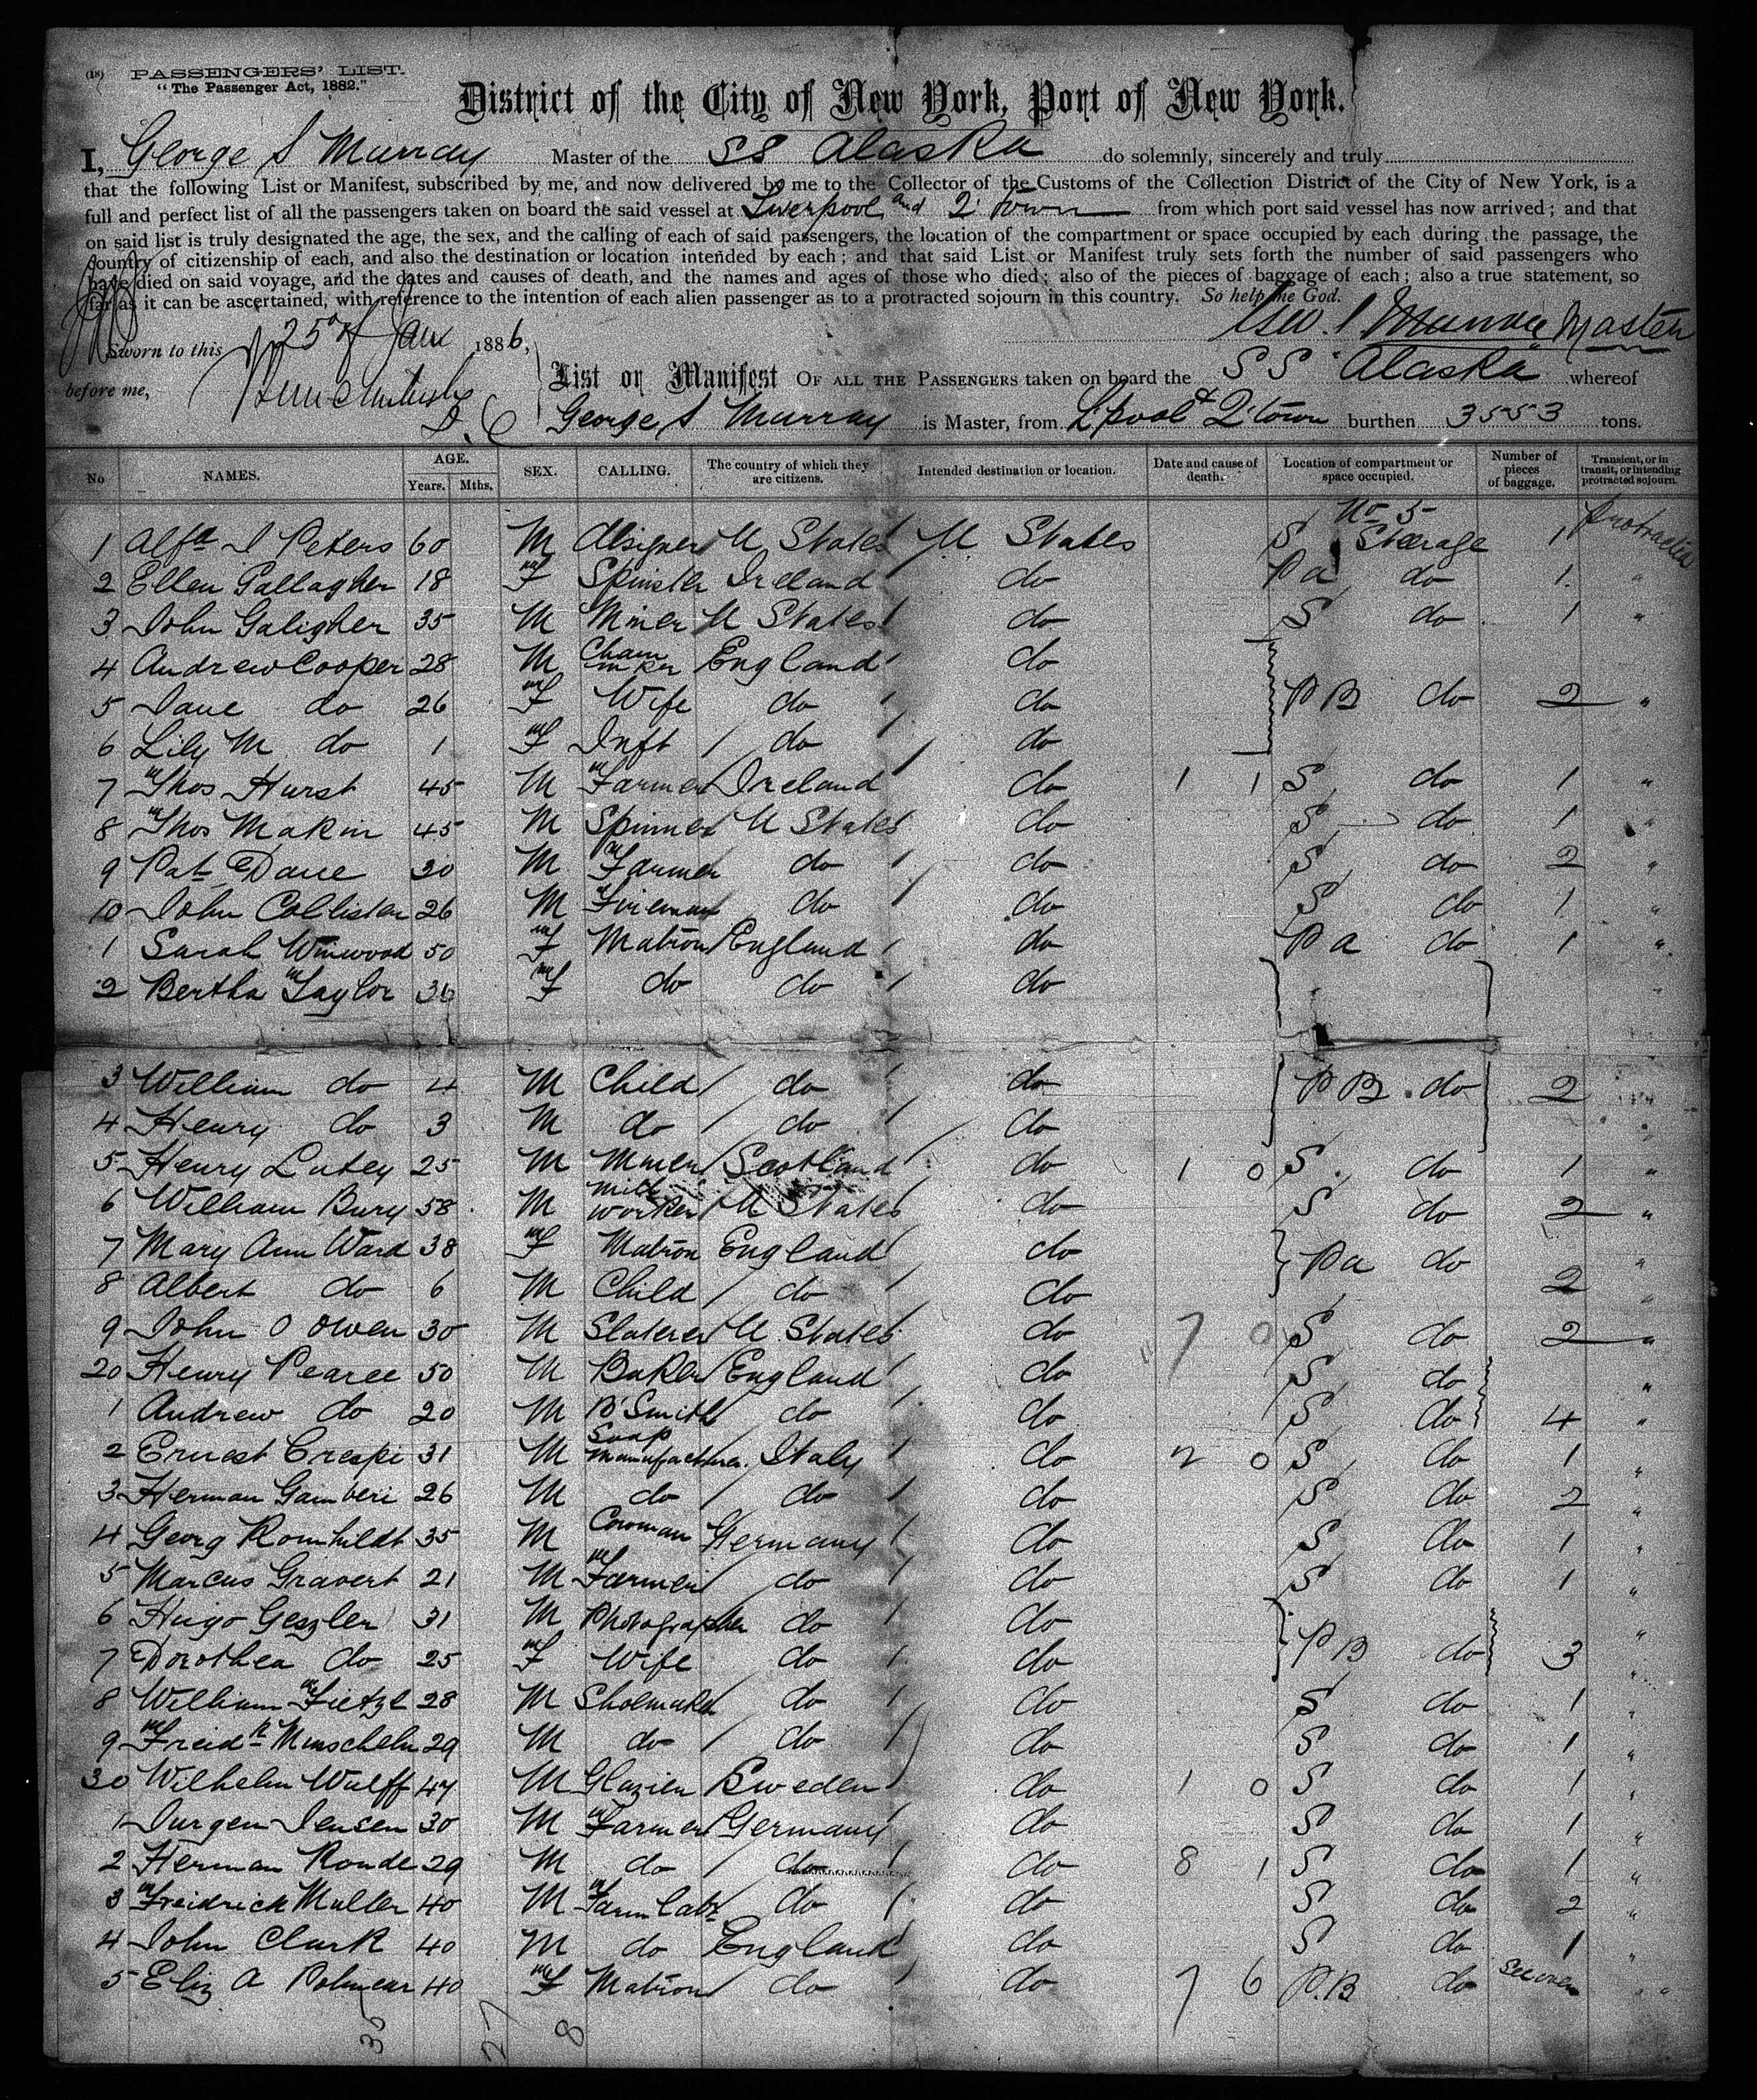 (18) PASSENGERS' LIST.
"The Passenger Act, 1882."
District of the City of New York, Port of New York.
I, George S Murray Master of the SS Alaska do solemnly, sincerely and truly
that the following List or Manifest, subscribed by me, and now delivered by me to the Collector of the Customs of the Collection District of the City of New York, is a
full and perfect list of all the passengers taken on board the said vessel at Liverpool and Q'town from which port said vessel has now arrived; and that
on said list is truly designated the age, the sex, and the calling of each of said passengers, the location of the compartment or space occupied by each during the passage, the
country of citizenship of each, and also the destination or location intended by each; and that said List or Manifest truly sets forth the number of said passengers who
have died on said voyage, and the dates and causes of death, and the names and ages of those who died; also of the pieces of baggage of each; also a true statement, so
far as it can be ascertained, with reference to the intention of each alien passenger as to a protracted sojourn in this country. So help me God.
Geo. S Murray Master
Sworn to this 25th Jany 1886,
before me, D.C
List or Manifest OF ALL THE PASSENGERS taken on board the SS "Alaska" whereof
George S Murray is Master, from L'pool & Q'town burthen 3553 tons.
No NAMES. AGE. Years. Mths. SEX. CALLING. The country of which they are citizens. Intended destination or location. Date and cause of death. Location of compartment or space occupied. Number of pieces of baggage. Transient, or in transit, or intending protracted sojourn.
No 5
1 Alfd I Peters 60 M Designer U States U States S Steerage 1 Protracted
2 Ellen Gallagher 18 F Spinster Ireland do Pa do 1 "
3 John Galigher 35 M Miner U States do S do 1 "
4 Andrew Cooper 28 M Chain mker England do
5 Jane do 26 F Wife do do PB do 2 "
6 Lily M do 1 F Inft do do
7 Thos Hurst 45 M Farmer Ireland do 1 1 S do 1 "
8 Thos Makin 45 M Spinner U States do S do 1 "
9 Pat Dane 20 M Farmer do do S do 2 "
10 John Collister 26 M Fireman do do S do 1 "
1 Sarah Winwood 50 F Matron England do Pa do 1 "
2 Bertha Taylor 36 F do do do "
3 William do 4 M Child do do PB do 2 "
4 Henry do 3 M do do do "
5 Henry Lutey 25 M Miner Scotland do 1 0 S do 1 "
6 William Bury 58 M Mill worker U States do S do 2 "
7 Mary Ann Ward 38 F Matron England do Pa do "
8 Albert do 6 M Child do do 2 "
9 John O Owen 30 M Slaterer U States do 7 0 S do 2 "
20 Henry Pearce 50 M Baker England do S do "
1 Andrew do 20 M B'Smith do do S do 4 "
2 Ernest Crespi 31 M Soap manufacturer Italy do 2 0 S do 1 "
3 Herman Gamberi 26 M do do do S do 2 "
4 Georg Romhildt 35 M Cowman Germany do S do 1 "
5 Marcus Gravert 21 M Farmer do do S do 1 "
6 Hugo Geszler 31 M Photographer do do "
7 Dorothea do 25 F Wife do do PB do 3 "
8 William Tietze 28 M Shoemaker do do S do 1 "
9 Freidk 29 M do do do S do 1 "
30 Wilhelm Wulff 47 M Glazier Sweden do 1 0 S do 1 "
1 Jurgen Jensen 30 M Farmer Germany do S do 1 "
2 Herman Ronde 29 M do do do 8 1 S do 1 "
3 Freidrick Muller 40 M Farm Labr do do S do 2 "
4 John Clark 40 M do England do S do 1 "
5 Eliz A 40 F Matron do do 7 6 P.B do See over " "
36 27 8